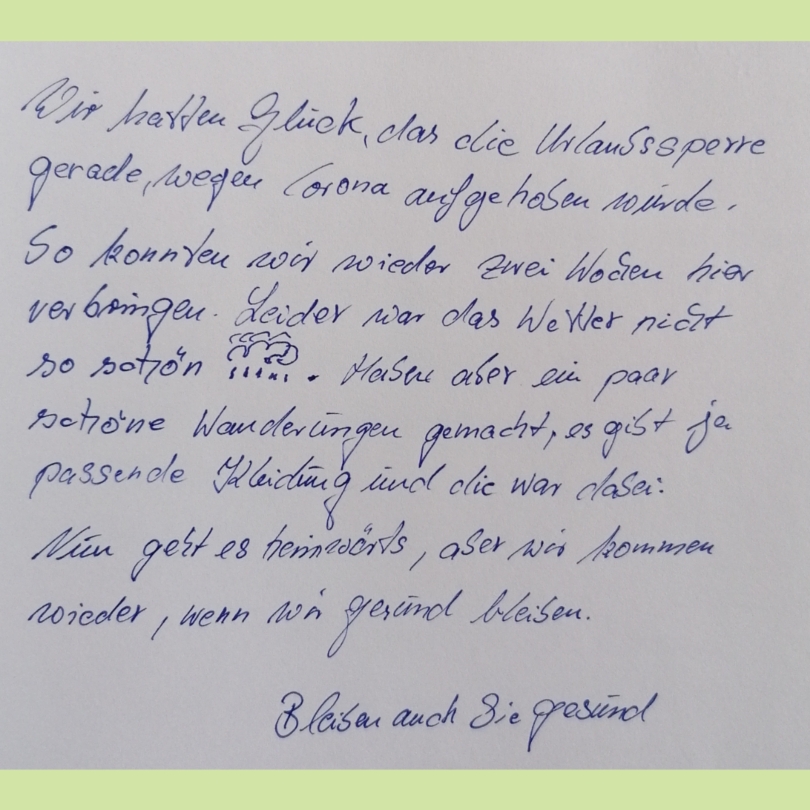 Wir hatten Glück, das die Urlaubssperre
gerade, wegen Corona aufgehoben wurde.
So konnten wir wieder zwei Wochen hier
verbringen. Leider war das Wetter nicht
so schön . Haben aber ein paar
schöne Wanderungen gemacht, es gibt ja
passende Kleidung und die war dabei.
Nun geht es heimwärts, aber wir kommen
wieder, wenn wir gesund bleiben.
Bleiben auch Sie gesund